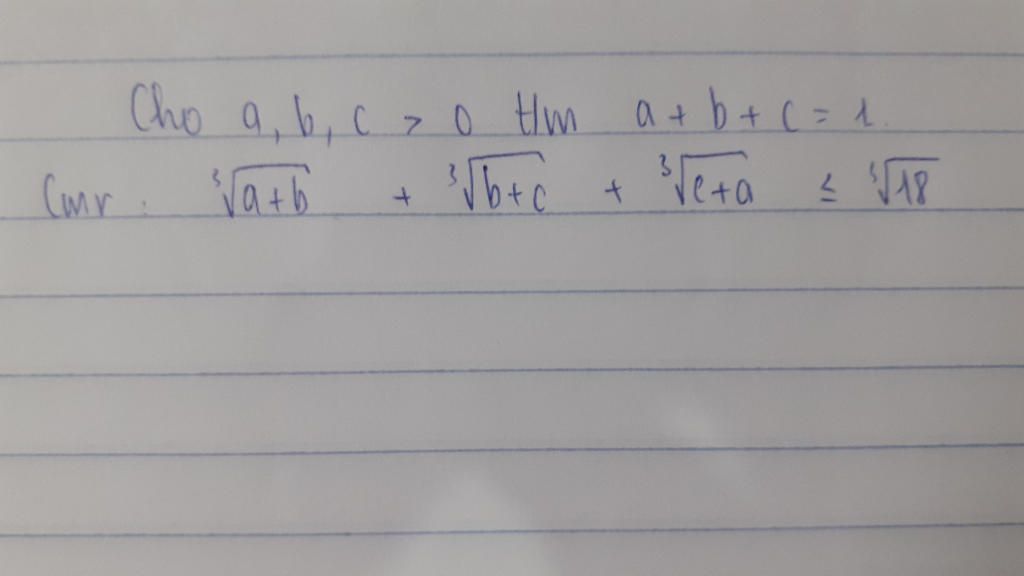 Cho a, b, c > 0 t/m a + b + c = 1.
Cmr: ∛(a+b) + ∛(b+c) + ∛(c+a) ≤ ∛18